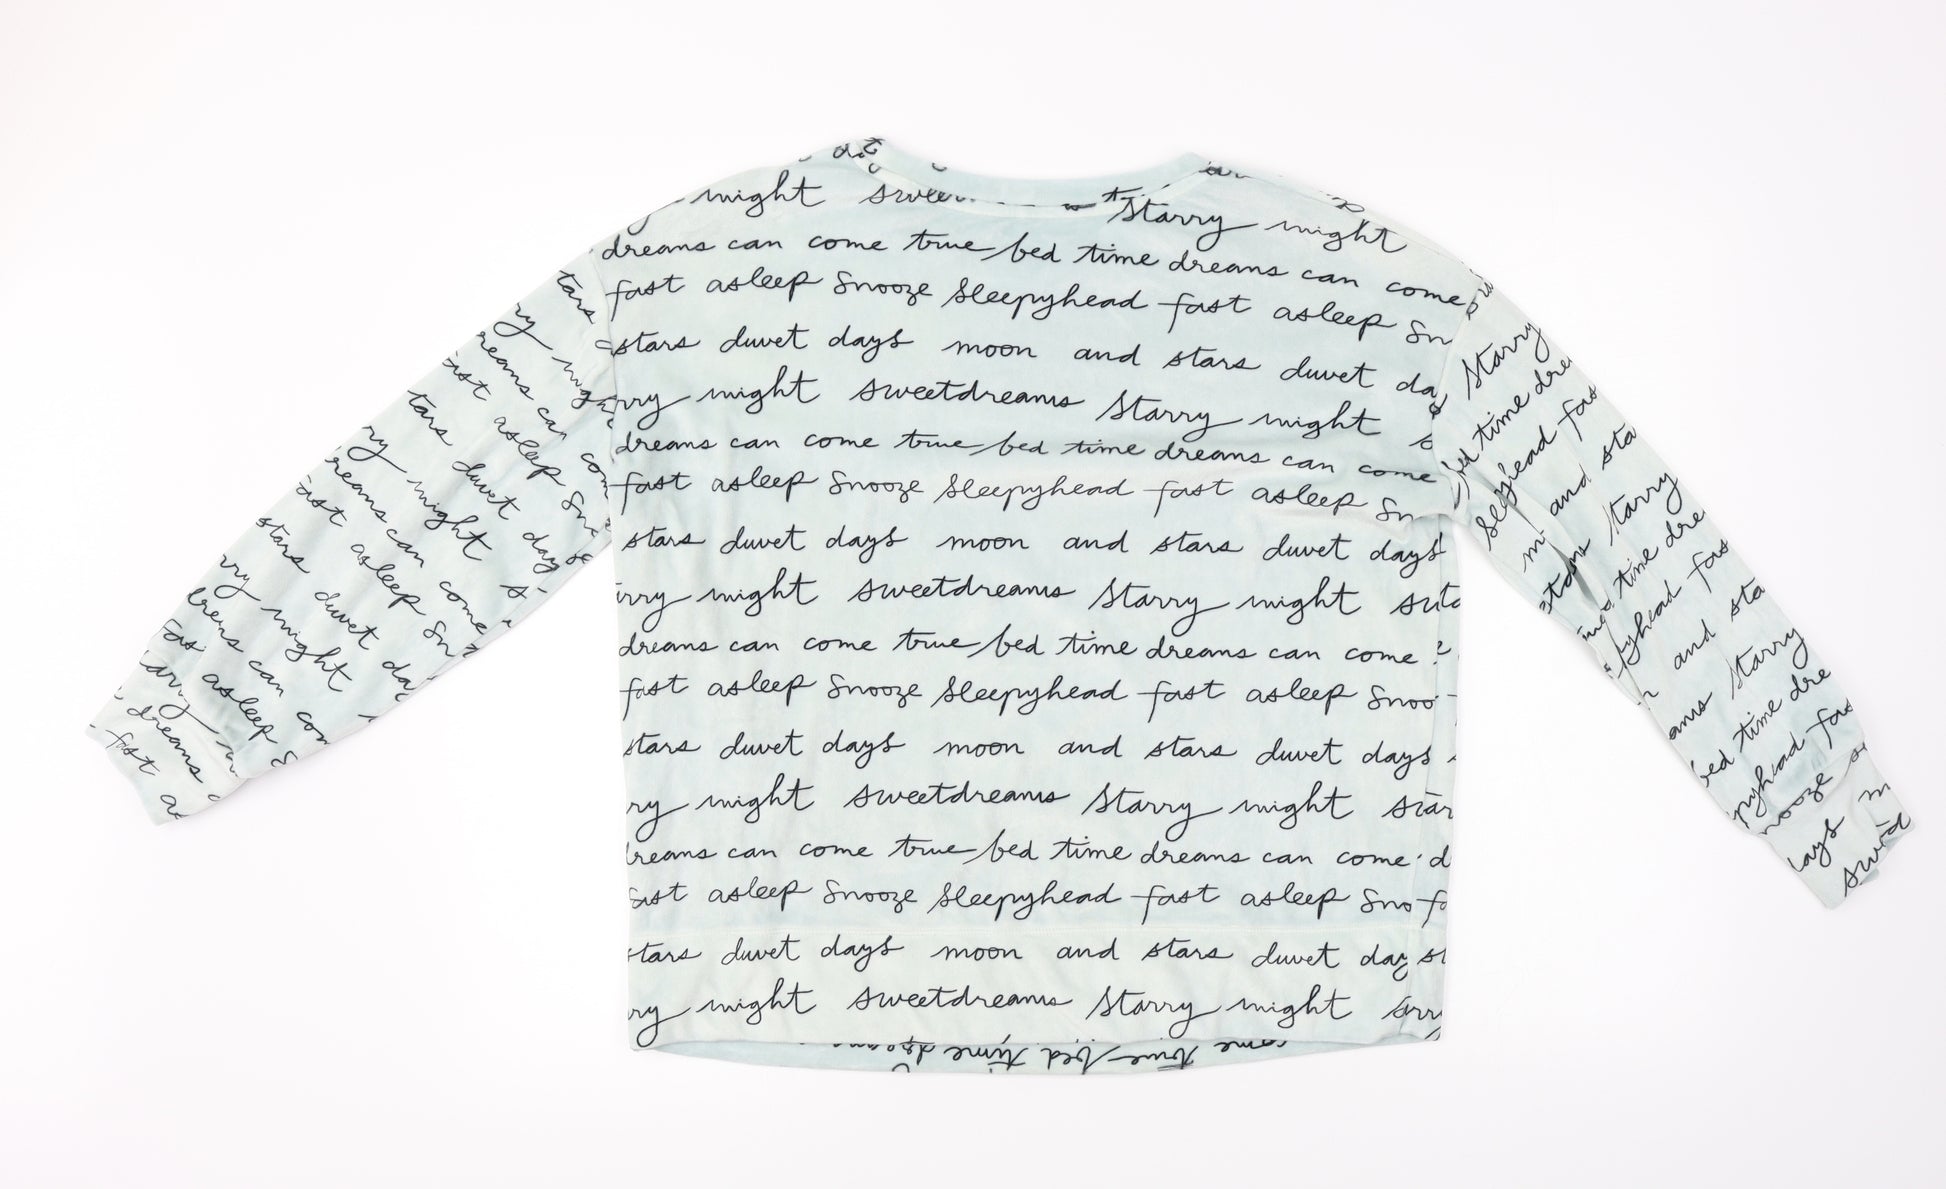 might Starry might
dreams can come true bed time dreams can come
fast asleep Snooze Sleepyhead fast asleep Sn
stars duvet days moon and stars duvet da
rry might sweetdreams Starry might s
dreams can come true bed time dreams can come
fast asleep Snooze Sleepyhead fast asleep Sn
stars duvet days moon and stars duvet days
rry might sweetdreams Starry might
dreams can come true bed time dreams can come
fast asleep Snooze Sleepyhead fast asleep Snoo
stars duvet days moon and stars duvet days
ry might sweetdreams Starry might
dreams can come true bed time dreams can come
asleep Snooze Sleepyhead fast asleep Sno
stars duvet days moon and stars duvet day
ry might sweetdreams Starry might
come true bed time
tars
ry might
reams can com
fast asleep Sn
tars duvet days
ry might
reams can come
fast asleep Sn
stars duvet da
rry might
can com
fast asleep S
dreams
fast a
Starry
bed time dre
Sleepyhead fas
and sta
Starry
time dre
pyhead fas
and sta
ams Starry
bed time dre
pyhead fas
nooze
ays